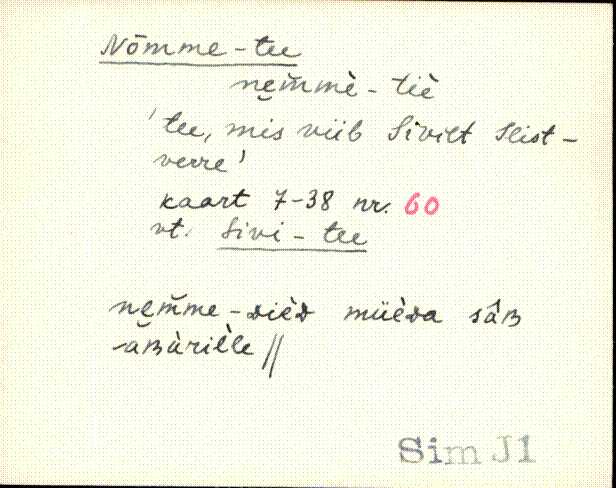 Nõmme-tee
nẹm̆mè-tiè
'tee, mis viib Sivilt Slist-
verre'
kaart 7-38 nr. 60
vt. Sivi-tee
nẹm̆me-dièd müèda sâʙ
ăʙàrièle //
Sim J1